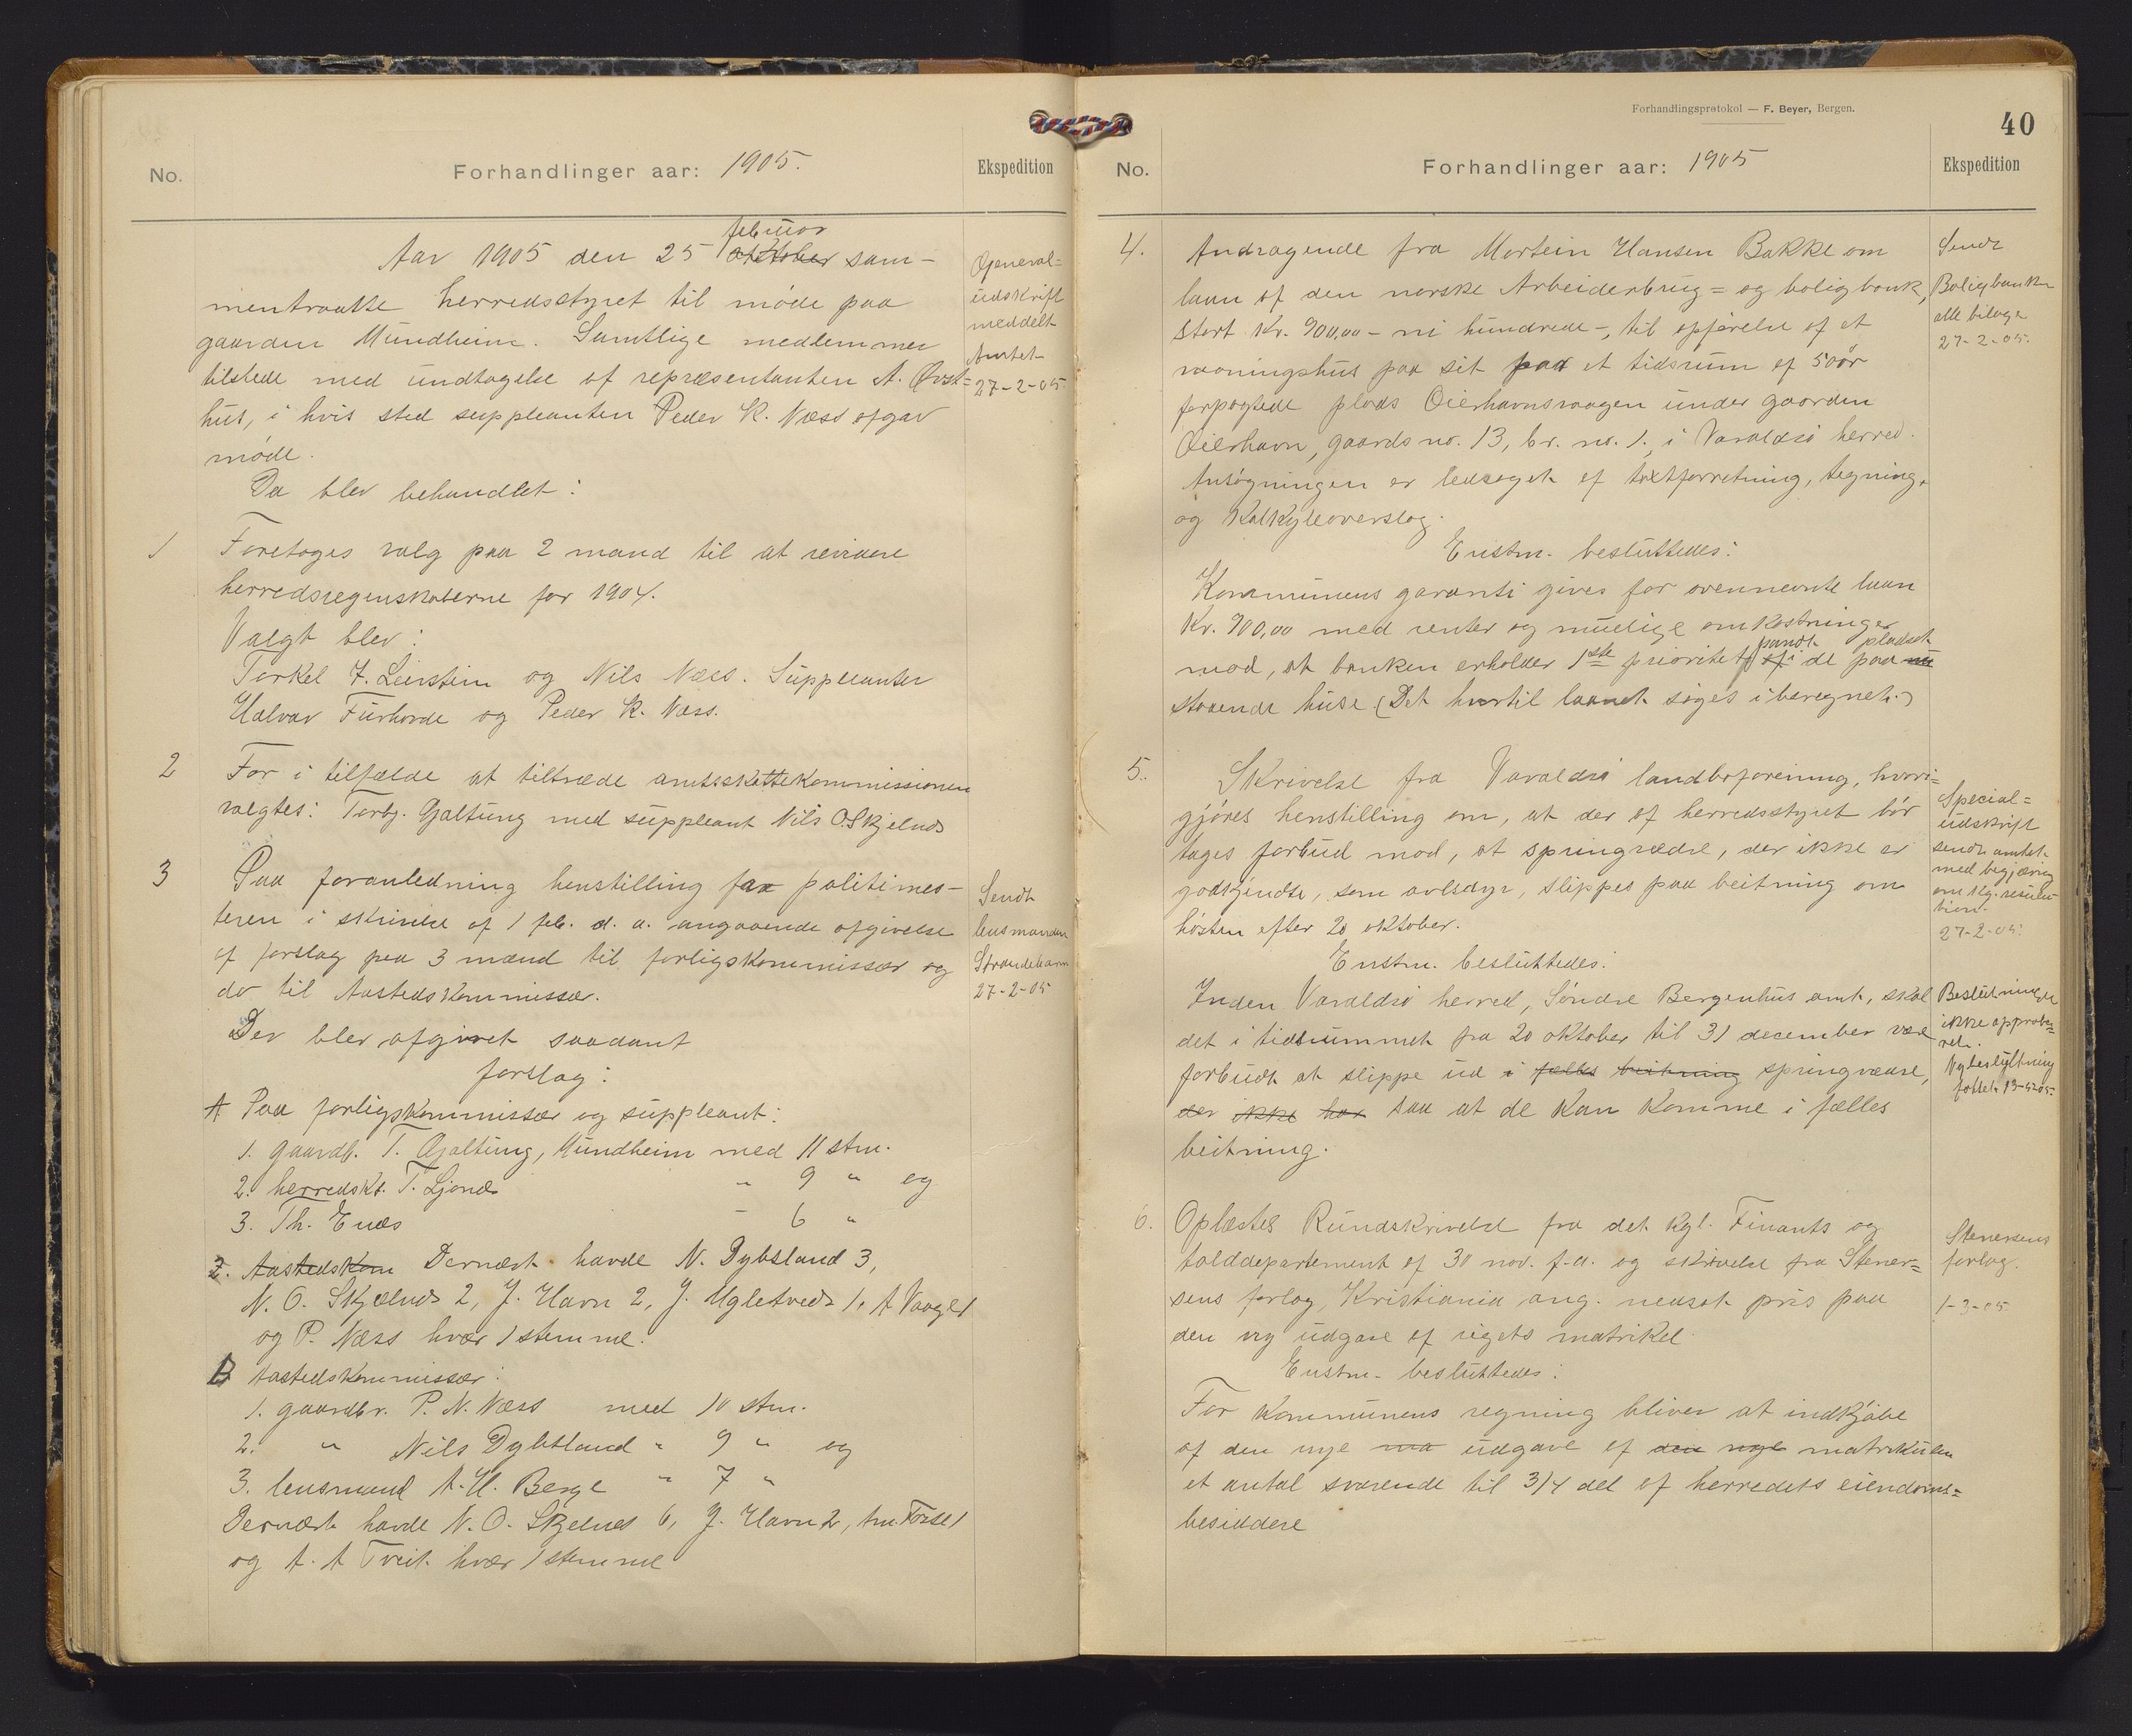 No.
Forhandlinger aar: 1905.
Ekspedition
februar
Aar 1905 den 25 oktober sam-
mentraatte herredsstyret til møde paa
gaarden Mundheim. Samtlige medlemmer
tilstede med undtagelse af repræsentanten A. Øvst=
hus, i hvis sted suppleanten Peder K. Næss afgav
møde.
Da blev behandlet:
General=
udskrift
meddelt
Amtet
27-2-05
1 Foretoges valg paa 2 mand til at revidere
herredsregnskaberne for 1904.
Valgt blev:
Torkel J. Leirstein og Nils Næss. Suppleanter
Halvar Furhovde og Peder K. Næss.
2 For i tilfælde at tiltræde amtsskattekommissionen
valgtes: Torbj. Gjaltung med suppleant Nils O. Skjelnæs
3 Paa foranledning henstilling fra politimes-
teren i skrivelse af 1 feb. d. a. angaaende afgivelse
af forslag paa 3 mænd til forligskommissær og
do til Aastedskommissær.
Der blev afgivet saadant
forslag:
Sendt
lensmanden
Strandebarm
27-2-05
A Paa forligskommissær og suppleant:
1. gaardb. T. Gjaltung, Mundheim med 11 stm.
2. herredsks. T. Ljones " 9 " og
3. Th. Enæs - 6 "
2. Aastedskom Dernæst havde N. Dybsland 3,
N. O. Skjelnæs 2, J. Havn 2, J. Ugletveds 1, A Vaage 1
og P. Næss hvær 1 stemme.
B Aastedskommissær:
1. gaardbr. P. N. Næss med 10 stm.
2. " Nils Dybsland " 9 " og
3. lensmand A. H. Berge " 7 "
Dernæst havde N. O. Skjelnes 6, J. Havn 2, 
og A. A Tveit hvær 1 stemme
Forhandlingsprotokol — F. Beyer, Bergen.
40
No.
Forhandlinger aar: 1905
Ekspedition
4. Andragende fra Mortein Hansen Bakke om
laan af den norske Arbeiderbrug= og boligbank,
stort Kr. 900,00 - ni hundrede -, til opførelse af et
vaaningshus paa sit paa et tidsrum af 50 år
forpagtede plads Øierhavnsvaagen under gaarden
Øierhavn, gaards no. 13, br. no. 1, i Varaldsø herred.
Ansøgningen er ledsaget af takstforretning, tegning,
og Kalkyleoverslag.
Sendt
Boligbanken
alle bilage
27-2-05.
Enstm. besluttedes:
Kommunens garanti gives for ovennevnte laan
Kr. 900,00 med renter og mulige omkostninger
mod, at banken erholder 1ste prioritet pandt af i de paa pladset
staaende huse. (Det hvortil laanet søges iberegnet.)
5. Skrivelse fra Varaldsø landboforening, hvori=
gjøres henstilling om, at der af herredsstyret bør
tages forbud mod, at springvædre, der ikke er
godkjendte, som avlsdyr, slippes paa beitning om
høsten efter 20 oktober.
Special=
udskrift
sendt amtet
med begjæring
om kg. resolu
tion.
27-2-05.
Enstm. besluttedes:
Inden Varaldsø herred, Søndre Bergenhus amt, skal
det i tidsrummet fra 20 oktober til 31 december være
forbudt at slippe ud i fælles beitning springvædre,
der ikke har saa at de kan komme i fælles
beitning.
Beslutningen
ikke approbe=
ret.
Ny beslutning
fattet 13-5-05.
6. Oplæstes Rundskrivelse fra det kgl. Finants og
tolddepartement af 30 nov. f.a. og skrivelse fra Stener=
sens forlag, Kristiania ang. nedsat pris paa
den ny udgave af rigets matrikel
Stenersens
forlag.
1-3-05
Enstm. besluttedes:
For Kommunens regning bliver at indkjøbe
af den nye ma udgave af den nye matrikulen
et antal svarende til 3/4 del af herredets eiendoms=
besiddere